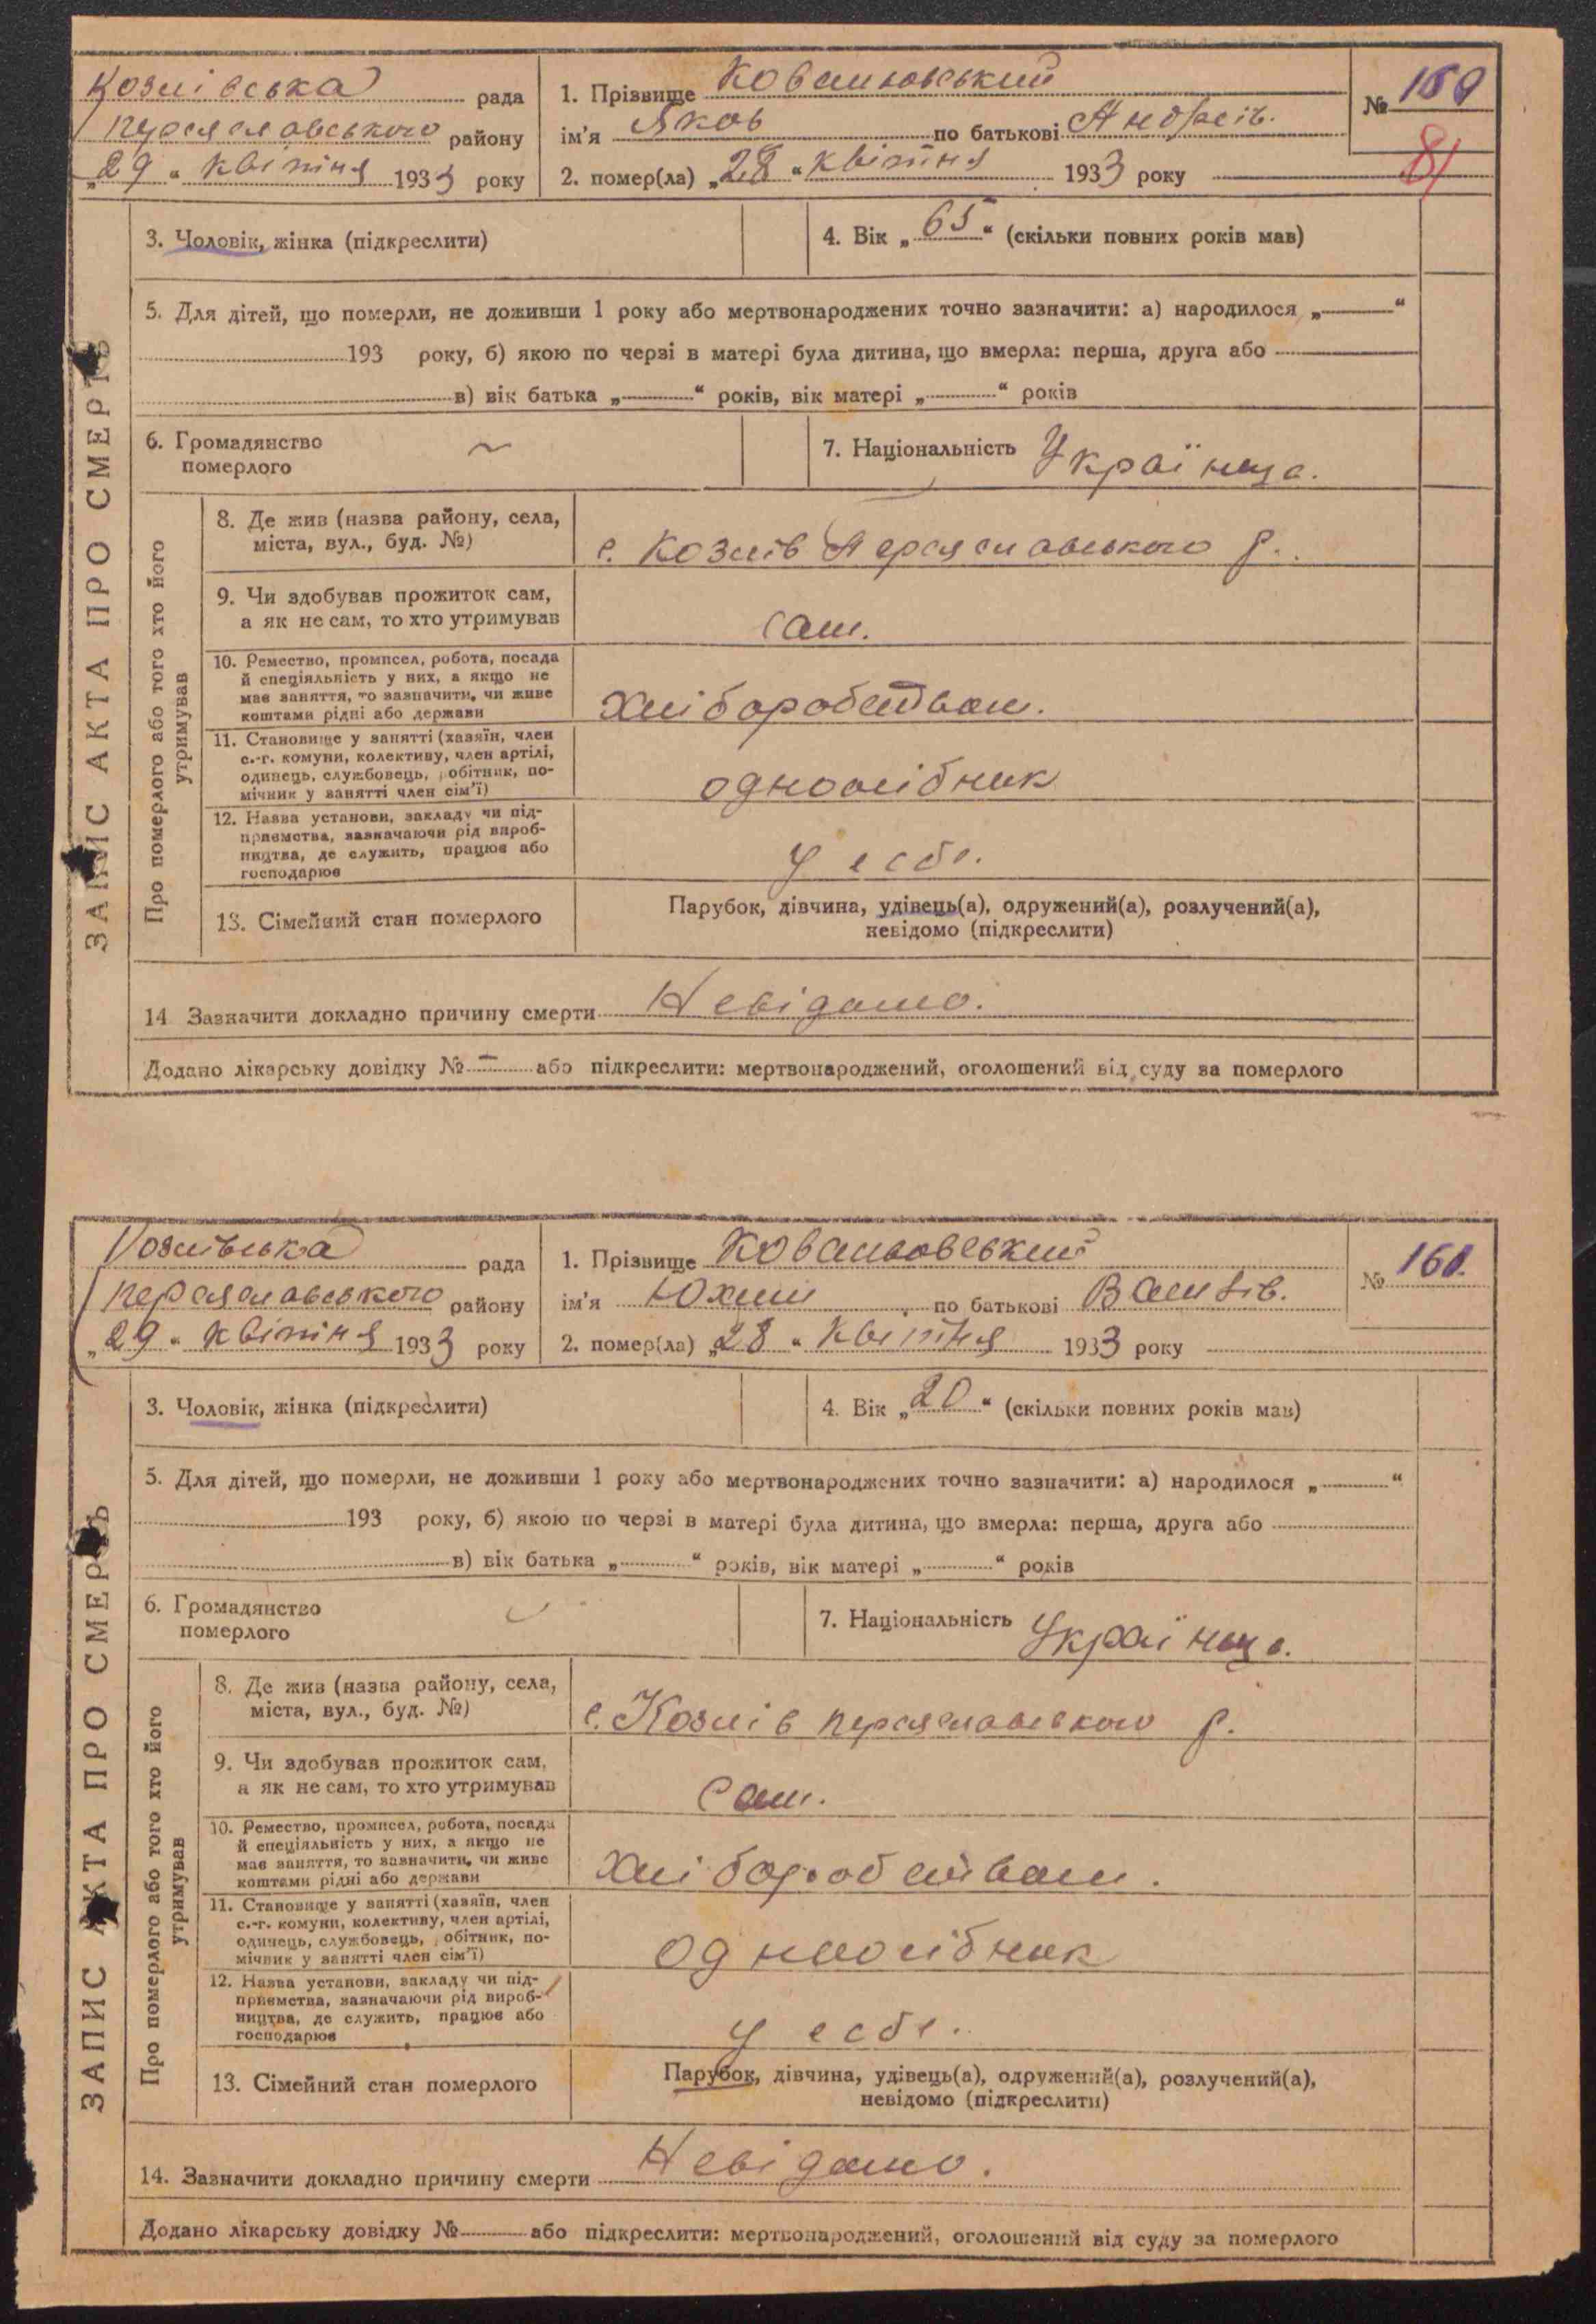 Козлівська рада
Переяславського району
„29“ квітня 1933 року
1. Прізвище Ковальовський
ім'я Яков по батькові Андреів.
2. помер(ла) „28“ квітня 1933 року
№ 159
81
3. Чоловік, жінка (підкреслити)
4. Вік „65“ (скільки повних років мав)
5. Для дітей, що померли, не доживши 1 року або мертвонароджених точно зазначити: а) народилося „—“
193 року, б) якою по черзі в матері була дитина, що вмерла: перша, друга або
в) вік батька „—“ років, вік матері „—“ років
6. Громадянство
померлого
7. Національність Українца.
ЗАПИС АКТА ПРО СМЕРТЬ
Про померлого або того хто його
утримував
8. Де жив (назва району, села,
міста, вул., буд. №)
с. Козлів Переяславського р.
9. Чи здобував прожиток сам,
а як не сам, то хто утримував
Сам.
10. Ремество, промисел, робота, посада
й спеціяльність у них, а якщо не
має заняття, то зазначити, чи живе
коштами рідні або держави
хліборобством.
11. Становище у занятті (хазяїн, член
с.-г. комуни, колективу, член артілі,
одинець, службовець, робітник, по-
мічник у занятті член сім'ї)
одноосібник
12. Назва установи, закладу чи під-
приємства, зазначаючи рід вироб-
ництва, де служить, працює або
господарює
у себе.
13. Сімейний стан померлого
Парубок, дівчина, удівець(а), одружений(а), розлучений(а),
невідомо (підкреслити)
14 Зазначити докладно причину смерти Невідомо.
Додано лікарську довідку № — або підкреслити: мертвонароджений, оголошений від суду за померлого
Козлівська рада
Переяславського району
„29“ квітня 1933 року
1. Прізвище Ковальовський
ім'я Юхим по батькові Васил​ів.
2. помер(ла) „28“ квітня 1933 року
№ 160.
3. Чоловік, жінка (підкреслити)
4. Вік „20“ (скільки повних років мав)
5. Для дітей, що померли, не доживши 1 року або мертвонароджених точно зазначити: а) народилося „ “
193 року, б) якою по черзі в матері була дитина, що вмерла: перша, друга або
в) вік батька „ “ років, вік матері „ “ років
6. Громадянство
померлого
7. Національність Українца.
ЗАПИС АКТА ПРО СМЕРТЬ
Про померлого або того хто його
утримував
8. Де жив (назва району, села,
міста, вул., буд. №)
с. Козлів Переяславського р.
9. Чи здобував прожиток сам,
а як не сам, то хто утримував
Сам.
10. Ремество, промисел, робота, посада
й спеціяльність у них, а якщо не
має заняття, то зазначити, чи живе
коштами рідні або держави
хліборобством.
11. Становище у занятті (хазяїн, член
с.-г. комуни, колективу, член артілі,
одинець, службовець, робітник, по-
мічник у занятті член сім'ї)
одноосібник
12. Назва установи, закладу чи під-
приємства, зазначаючи рід вироб-
ництва, де служить, працює або
господарює
у себе.
13. Сімейний стан померлого
Парубок, дівчина, удівець(а), одружений(а), розлучений(а),
невідомо (підкреслити)
14. Зазначити докладно причину смерти Невідомо.
Додано лікарську довідку № або підкреслити: мертвонароджений, оголошений від суду за померлого